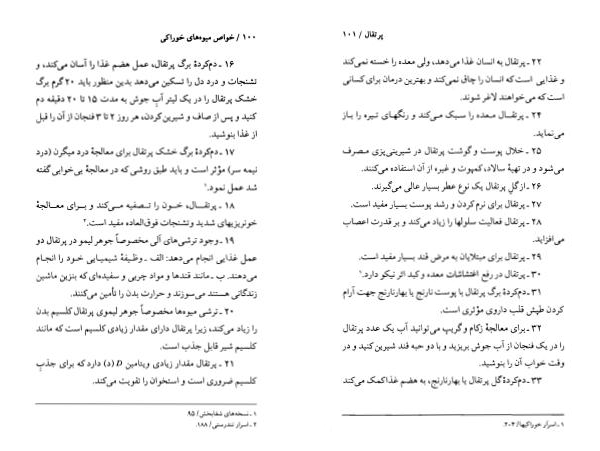 ۱۰۰ / خواص میوه‌های خوراکی
۱۶ - دم‌کردهٔ برگ پرتقال، عمل هضم غذا را آسان می‌کند، و
تشنجات و درد دل را تسکین می‌دهد بدین منظور باید ۲۰ گرم برگ
خشک پرتقال را در یک لیتر آب جوش به مدت ۱۵ تا ۲۰ دقیقه دم
کنید و پس از صاف و شیرین‌کردن، هر روز ۲ تا ۳ فنجان از آن را قبل
از غذا بنوشید.
۱۷ - دم‌کردهٔ برگ خشک پرتقال برای معالجهٔ درد میگرن (درد
نیمه سر) مؤثر است و باید طبق روشی که در معالجهٔ بی‌خوابی گفته
شد عمل نمود.۱
۱۸ - پرتقـال، خـون را تـصفیه مـی‌کند و بـرای مـعـالجهٔ
خونریزیهای شدید وتشنجات فوق‌العاده مفید است.۲
۱۹ - وجود ترشی‌های آلی مخصوصاً جوهر لیمو در پرتقال دو
عمل غذایی انجام می‌دهد: الف - وظیفهٔ شیمیایی خود را انـجام
می‌دهند. ب - مانند قندها و مواد چربی و سفیده‌ای که بنزین ماشین
زندگانی هستند می‌سوزند و حرارت بدن را تأمین می‌کنند.
۲۰ - ترشی میوه‌ها مخصوصاً جوهر لیموی پرتقال کلسیم بدن
را زیاد می‌کند، زیرا پرتقال دارای مقدار زیادی کلسیم است که مانند
کلسیم شیر قابل جذب است.
۲۱ - پرتقال مقدار زیادی ویتامین D (د) دارد که برای جذب
کلسیم ضروری است و استخوان را تقویت می‌کند.
۱ - نسخه‌های شفابخش / ۹۵.
۲ - اسرار تندرستی / ۱۸۸.
پرتقال / ۱۰۱
۲۲ - پرتقال به انسان غذا می‌دهد، ولی معده را خسته نمی‌کند
و غذایی است که انسان را چاق نمی‌کند و بهترین درمان برای کسانی
است که می‌خواهند لاغر شوند.
۲۴ - پرتقـال معده را سبک می‌کند و رنگهای تیره را بـاز
می‌نماید.
۲۵ - خلال پوست و گوشت پرتقال در شیرینی‌پزی مـصرف
می‌شود و در تهیهٔ سالاد، کمپوت و غیره از آن استفاده می‌کنند.
۲۶ - ازگل پرتقال یک نوع عطر بسیار عالی می‌گیرند.
۲۷ - پرتقال برای نرم کردن و رشد پوست بسیار مفید است.
۲۸ - پرتقال فعالیت سلولها را زیاد می‌کند و بر قدرت اعصاب
می‌افزاید.
۲۹ - پرتقال برای مبتلایان به مرض قند بسیار مفید است.
۳۰ - پرتقال در رفع اغتشاشات معده و کبد اثر نیکو دارد.۱
۳۱ - دم‌کردهٔ برگ پرتقال با پوست نارنج یا بهارنارنج جهت آرام
کردن طپش قلب داروی مؤثری است.
۳۲ - برای معالجهٔ زکام و گریپ می‌توانید آب یک عدد پرتقال
را در یک فنجان از آب جوش بریزید و با دو حبه قند شیرین کنید و در
وقت خواب آن را بنوشید.
۳۳ - دم‌کردهٔ گل پرتقال یا بهارنارنج، به هضم غذاکمک می‌کند
۱ - اسرار خوراکیها / ۲۰۴.